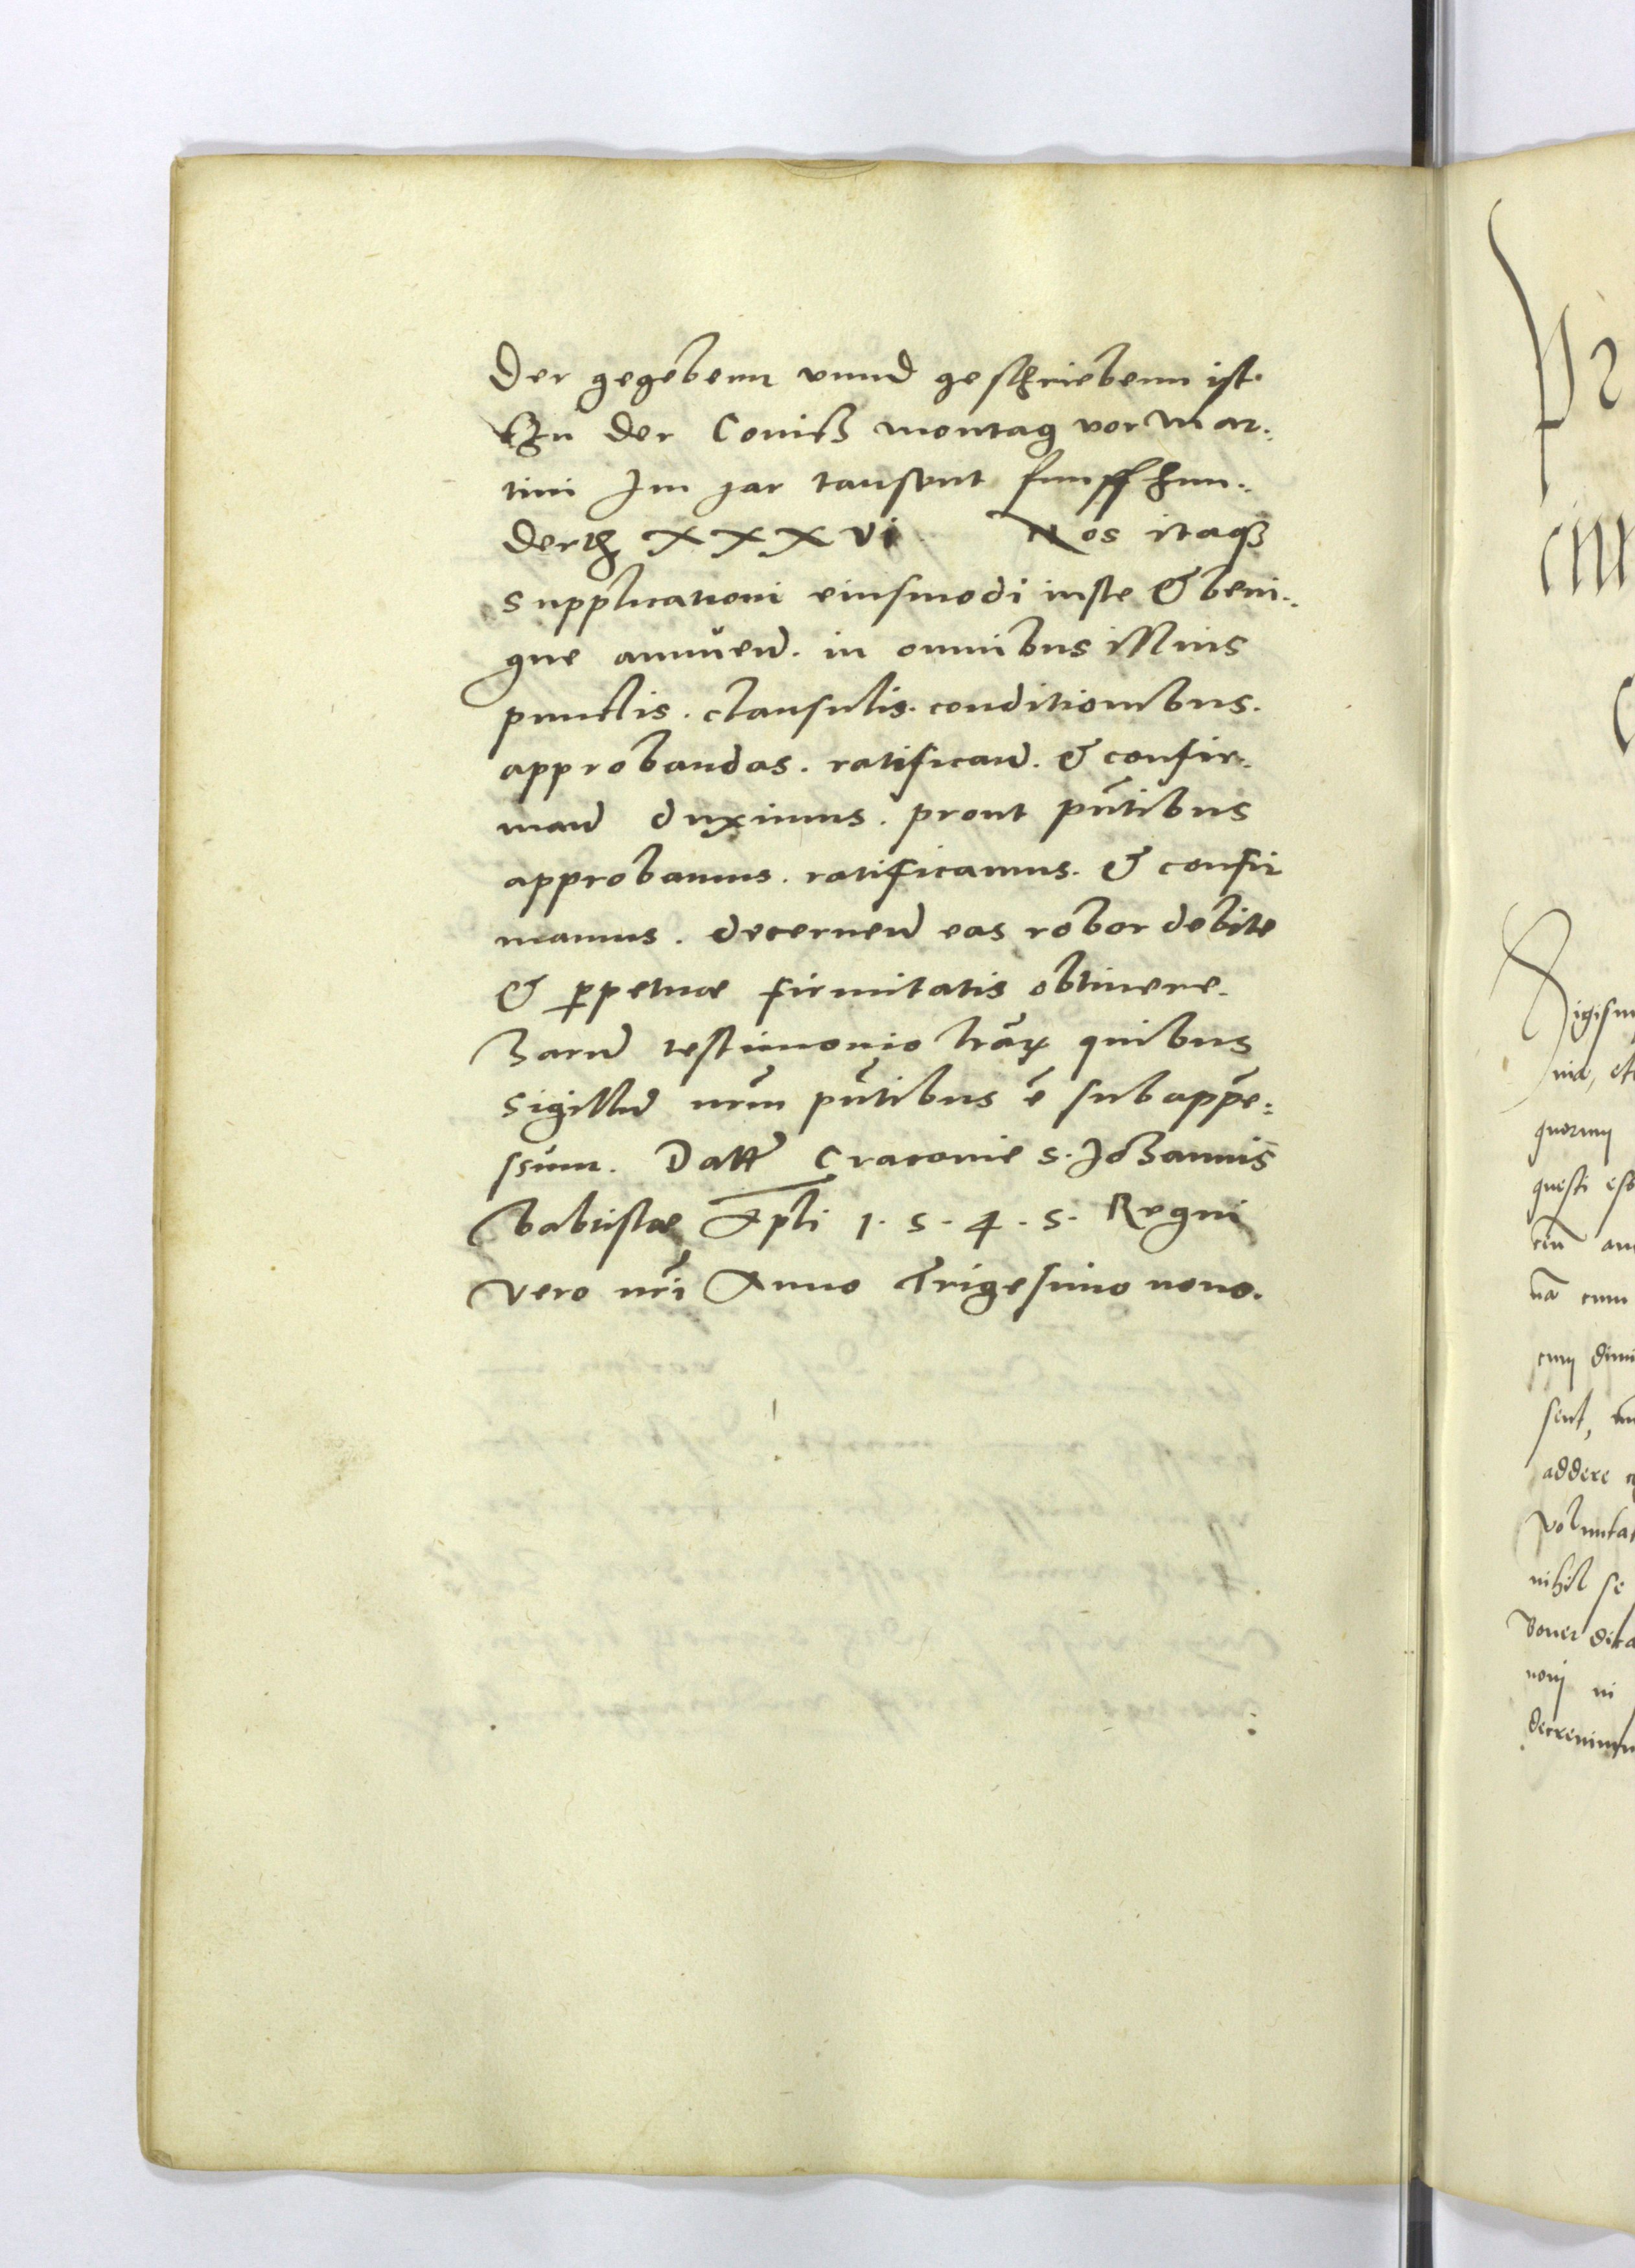 Der gegebenn vnnd geschriebenn ist.
tzu der Conitz montag vor Mar-
tini Im jar tausent funffhun-
derth XXXVi Nos itaq3
supplicationi eiusmodi iuste & beni-
gne annuen̄. in omnibus illius
punctis. clausulis. conditionibus.
approbandas. ratificand̄. & confir-
mand̄ duximus. prout pn̄tibus
approbamus. ratificamus. & confir
mamus. decernen̄ eas robor debite
& perpetuae firmitatis obtinere.
Harum testimonio lrāꝝ quibus
sigillum nrm̄ pn̄tibus ē subappē-
ssum. Datt Cracouie s. Johannis
babtistae Apli 1.5.4.5. Regni
vero nrī Anno Trigesimo nono.
Sigism
nia, et
quorum
questi es
an
cum
sent,
addere
voluntat
nihil se